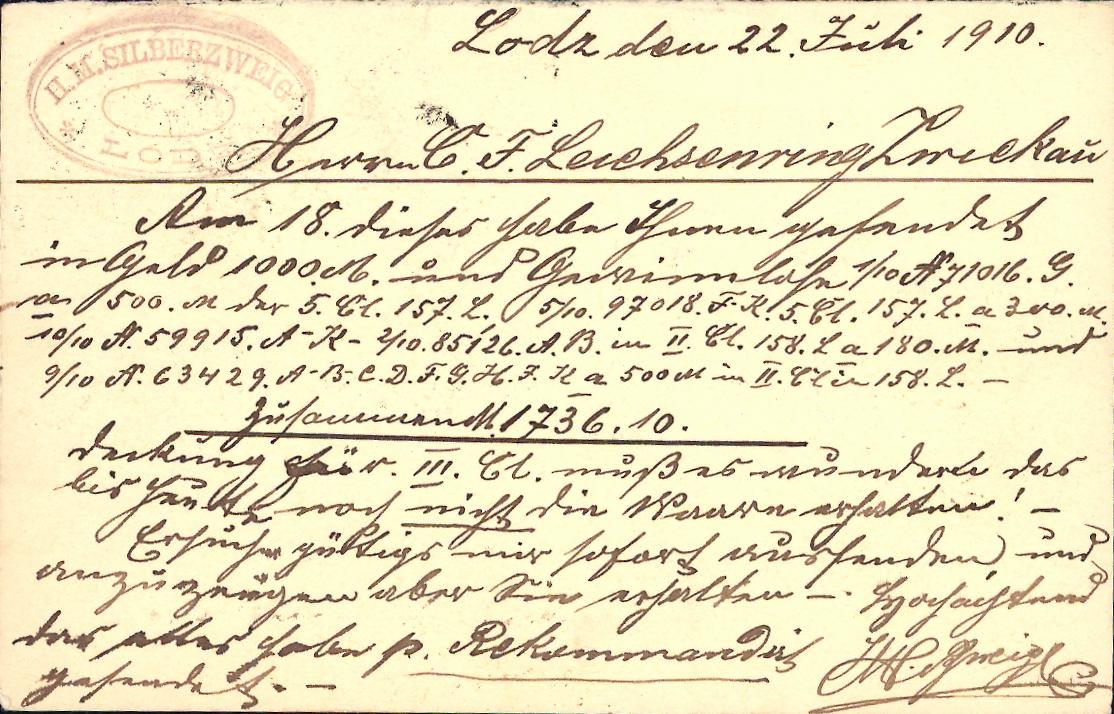 H. M. SILBERZWEIG
LODZ
Lodz den 22. Juli 1910.
Herrn C. F. Leichsenring Zwickau
Am 18. dieses habe Ihnen gesendet
in Geld 1000 M. und Gewinnlose 1/10 N 71016. G.
a 500. M der 5. Cl. 157. L. 5/10. 97018. F-K. 5. Cl. 157. L. a 300. M.
10/10 N. 59915. A-K - 2/10. 85126. A. B. in II. Cl. 158. L a 180. M. und
9/10 N. 63429. A-B-C. D. F. G. H. J. K a 500 M in II. Cl in 158. L. -
Zusammen M. 1736. 10.
deckung für r. III. Cl. muß es wundern das
bis heute noch nicht die Waare erhalten! -
Ersuche gütigs mir sofort aussenden, und
anzuzeigen aber Sie erhalten -. Hochachtend
das alles habe p. Rekommandirt
gesendet. -